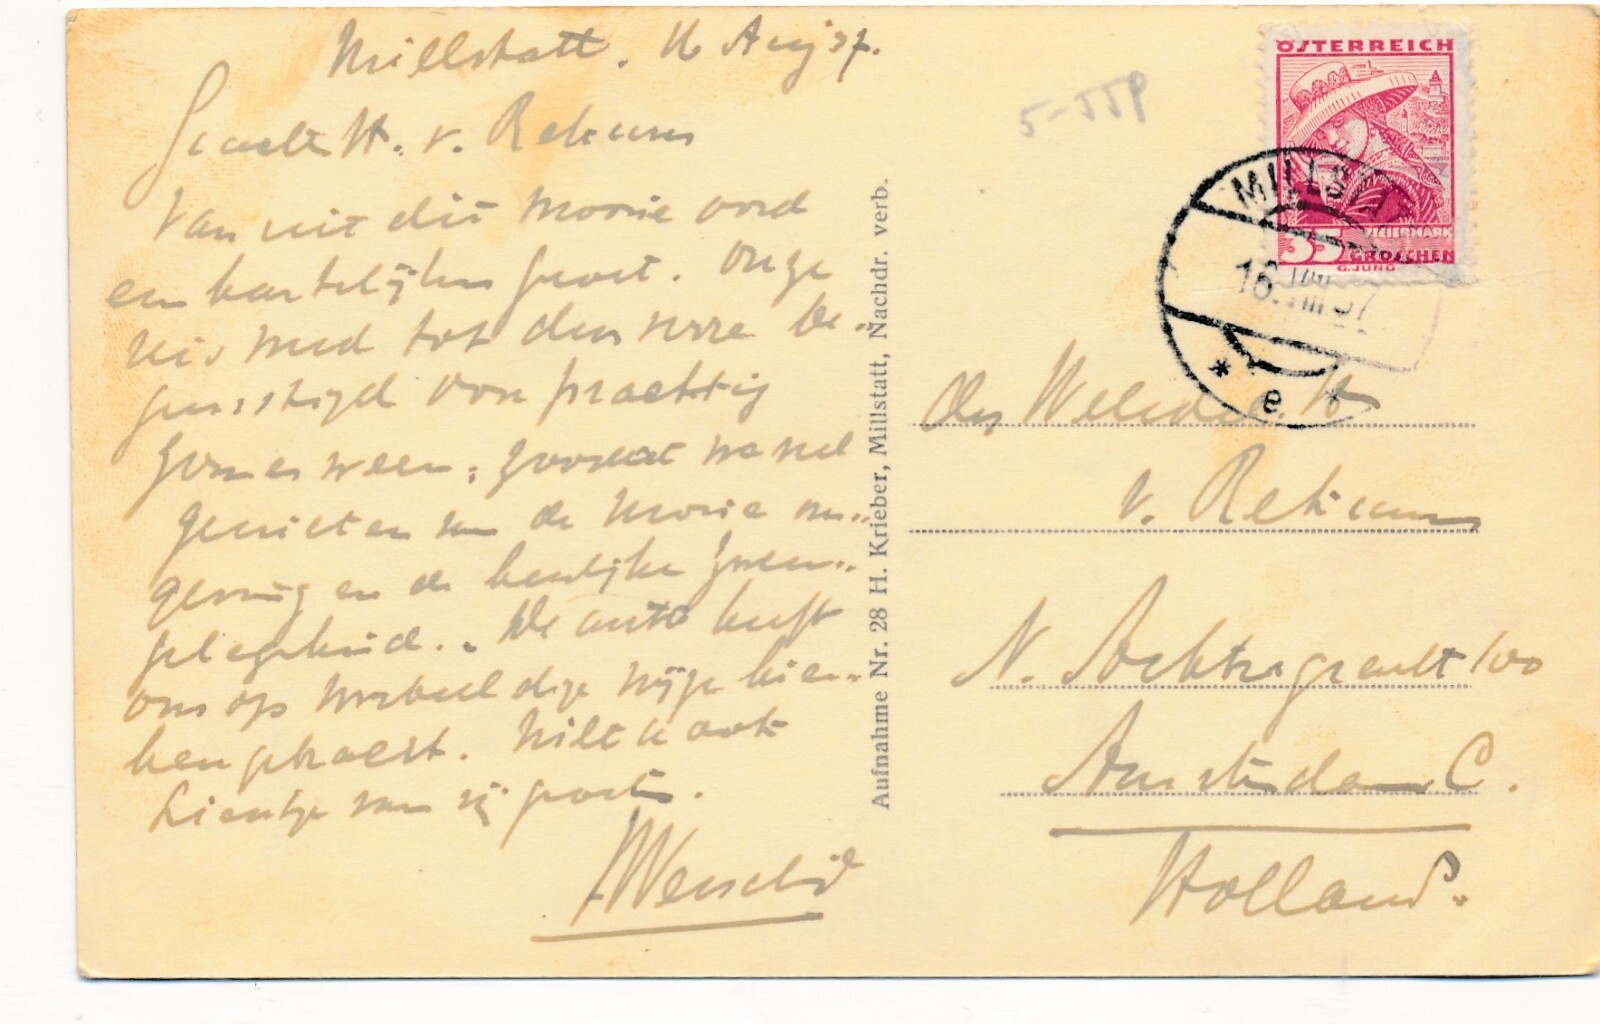 Millstatt, 16 Aug 37.
Geachte H. v. Rekum
Van uit dit mooie oord
een hartelijken groet. Onze
reis werd tot dusverre be-
gunstigd door prachtig
zomerweer, zoodat we veel
genieten van de mooie om-
geving en de heerlijke zwem-
gelegenheid. De auto heeft
ons op wijze hier-
heen gebracht. Wilt U ook
Lientje van mij groeten.
5-
ÖSTERREICH
STEIERMARK
35 GROSCHEN
G.JUNG
MILLSTATT
16.VIII 37
* e *
Aufnahme Nr. 28 H. Krieber, Millstatt, Nachdr. verb.
H
v. Rekum
N. Achtergracht 100
Amsterdam C.
Holland.